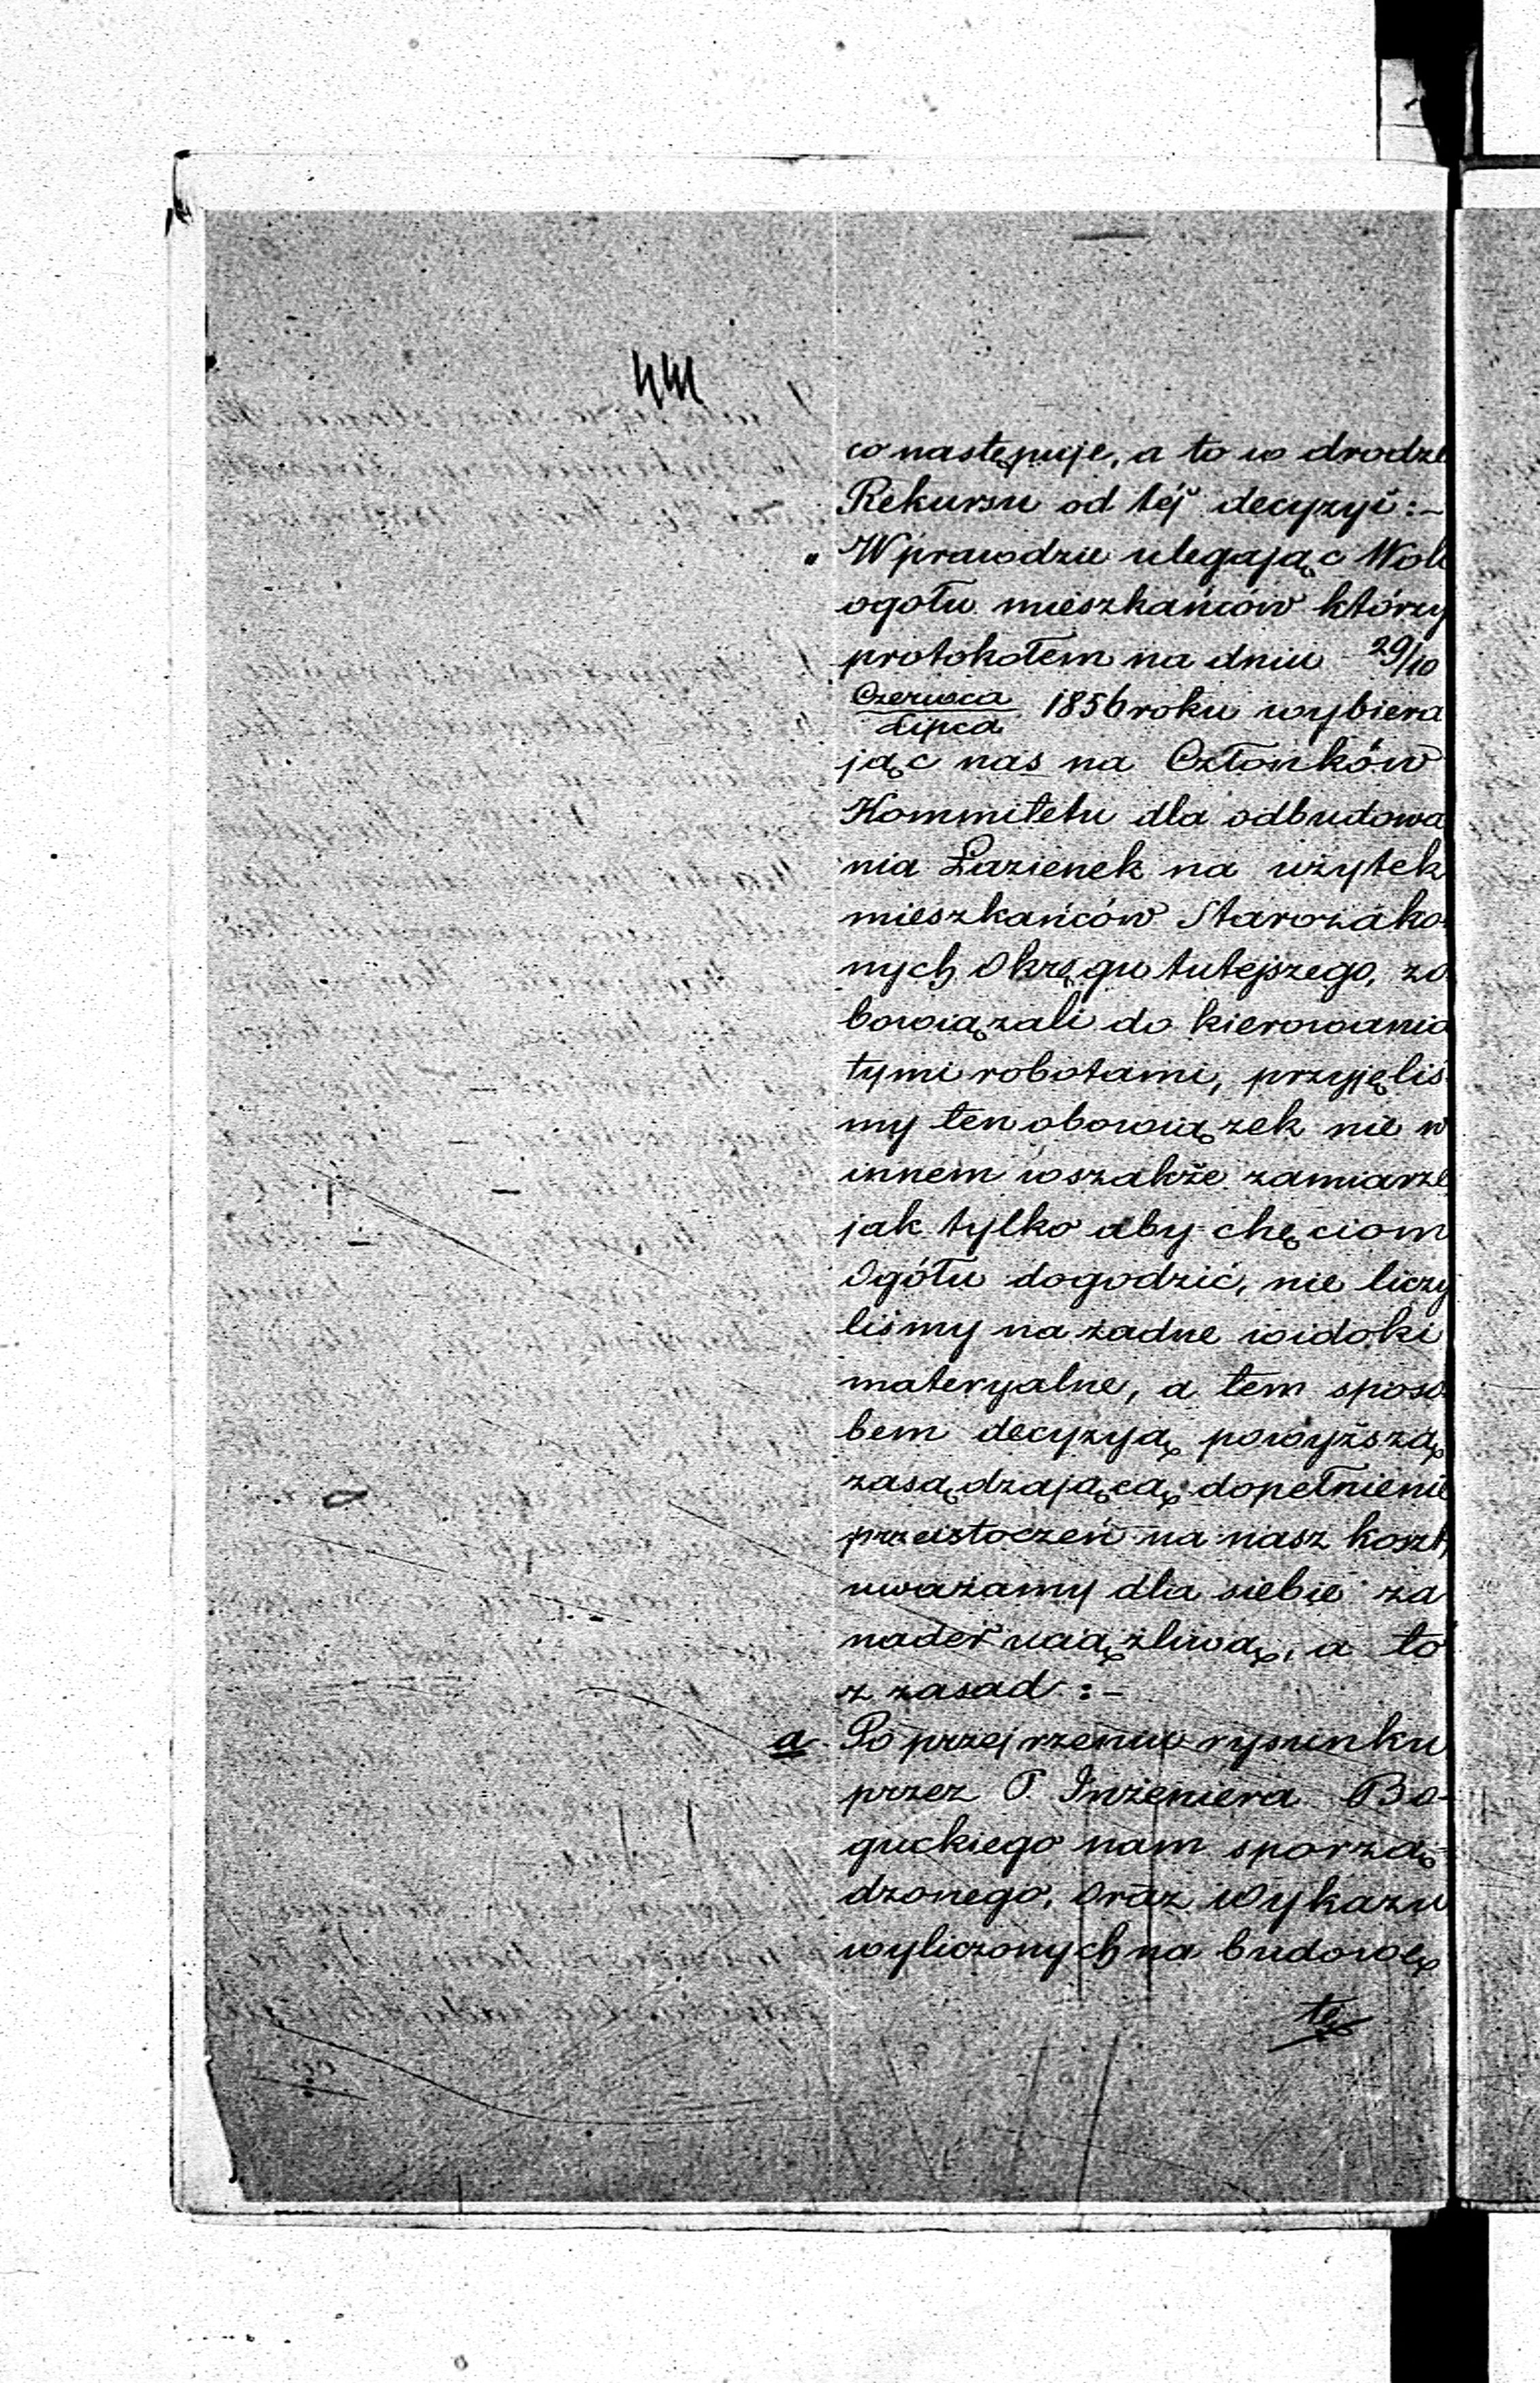 co następuje, a to w drodze
Rekursu od téj decyzyi :-
" Wprawdzie ulegając Woli
ogołu mieszkańców którzy
protokołem na dniu 29/10
Czerwca/Lipca 1856 roku wybiera
jąc nas na Członków
Kommitetu dla odbudowa
nia Łazienek na użytek
mieszkańców Starozako
nych Okręgu tutejszego, zo
bowiązali do kierowania
tymi robotami, przyjęliś
my ten obowiązek nie w
innem wszakże zamiarze
jak tylko aby chęciom
Ogółu dogodzić, nie liczy
liśmy na żadne widoki
materyalne, a tem sposo
bem decyzyą powyższą
zasądzającą dopełnienie
przeistoczeń na nasz koszt,
uważamy dla siebie za
nader uciążliwą, a to
z zasad :-
a Po przejrzeniu rysunku
przez P. Inżeniera Bo-
guckiego nam sporzą-
dzonego, oraz wykazu
wyliczonych na budowę
tę